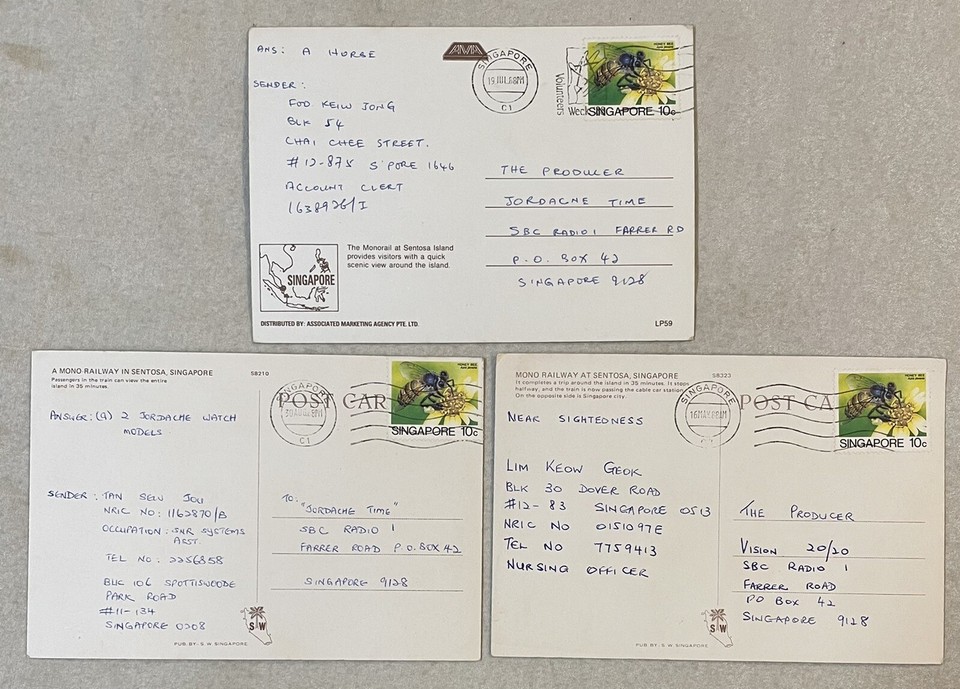 ANS: A HORSE
SENDER:
FOO KEIW JONG
BLK 54
CHAI CHEE STREET.
#12-875 S'PORE 1646
ACCOUNT CLERT
1638926/I
The Monorail at Sentosa Island
provides visitors with a quick
scenic view around the island.
SINGAPORE
DISTRIBUTED BY: ASSOCIATED MARKETING AGENCY PTE. LTD.
SINGAPORE
C1
Volunteers
Week
HONEY BEE
SINGAPORE 10c
THE PRODUCER
JORDACHE TIME
SBC RADIO 1 FARRER RD
P.O. BOX 42
SINGAPORE 9128
LP59
A MONO RAILWAY IN SENTOSA, SINGAPORE
S8210
Passengers in the train can view the entire
island in 35 minutes.
POST CAR
SINGAPORE
C1
HONEY BEE
SINGAPORE 10c
ANSWER: (A) 2 JORDACHE WATCH
MODELS
SENDER: TAN SEW JOU
NRIC NO: 1162870/B
OCCUPATION: SNR SYSTEMS
ASST.
TEL NO: 2256858
BLK 106 SPOTTISWOODE
PARK ROAD
#11-134
SINGAPORE 0208
TO:
"JORDACHE TIME"
SBC RADIO 1
FARRER ROAD P.O. BOX 42
SINGAPORE 9128
SW
PUB. BY: S.W. SINGAPORE.
MONO RAILWAY AT SENTOSA, SINGAPORE
S8323
It completes a trip around the island in 35 minutes. It stops
halfway, and the train is now passing the cable car station.
On the opposite side is Singapore city.
POST CA
SINGAPORE
C1
HONEY BEE
SINGAPORE 10c
NEAR SIGHTEDNESS
LIM KEOW GEOK
BLK 30 DOVER ROAD
#12-83 SINGAPORE 0513
NRIC NO 0151097E
TEL NO 7759413
NURSING OFFICER
THE PRODUCER
VISION 20/20
SBC RADIO 1
FARRER ROAD
PO BOX 42
SINGAPORE 9128
SW
PUB. BY: S.W. SINGAPORE